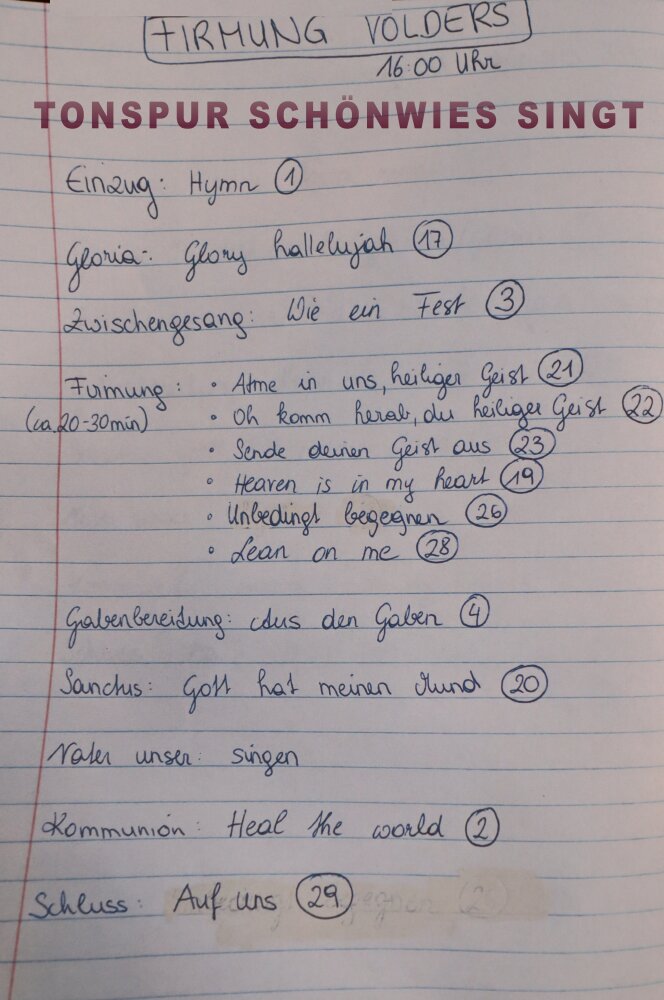 FIRMUNG VOLDERS
16:00 Uhr
TONSPUR SCHÖNWIES SINGT
Einzug: Hymn 1
Gloria: Glory hallelujah 17
Zwischengesang: Wie ein Fest 3
Firmung: • Atme in uns, heiliger Geist 21
(ca. 20-30min) • Oh komm herab, du heiliger Geist 22
• Sende deinen Geist aus 23
• Heaven is in my heart 19
• Unbedingt begegnen 26
• Lean on me 28
Gabenbereitung: Aus den Gaben 4
Sanctus: Gott hat meinen Mund 20
Vater unser: singen
Kommunion: Heal the world 2
Schluss: Auf uns 29